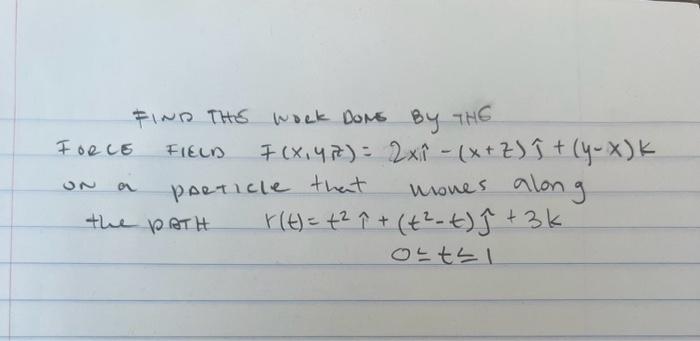 FIND THE WORK DONE By THE
FORCE FIELD F(x,y,z)= 2xî - (x+z)ĵ + (y-x)k
ON a PARTICLE that moves along
the PATH r(t)= t² î + (t²-t)ĵ + 3k
0≤t≤1